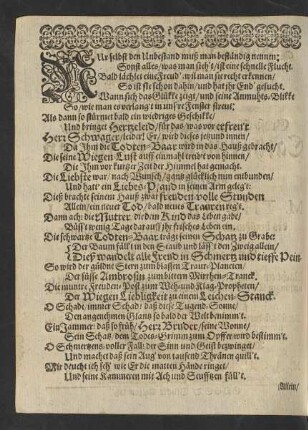 Nur selbst den Unbestand muß man beständig nennen;
Sonst alles/ was man sich't/ ist eine schnelle Flucht.
Bald lächlet eine Freud'/ wil man sie recht erkennen/
So ist sie schon dahin/ und hat jhr End' gesucht.
Wann sich das Glükke zeigt/ und seine Anmuhts-Blikke
So/ wie man es verlangt in unsre Fenster streut;
Als dann so stürmet bald ein wiedriges Geschikke/
Und bringet Hertzeleid/ für das/ was vor erfreu't
Herr Schwager/ leider! Er/ wird dieses jetzund innen/
Da Ihm die Todten-Baar wird in das Hauß gebracht/
Die seine Wiegen-Lust auff einmahl treibt von hinnen/
Die Ihm vor kurtzer Zeit den Himmel hat gemacht.
Die Liebste war/ nach Wunsch/ gantz glücklich nun entbunden/
Und hatt' ein Liebes-Pfand in seinen Arm geleg't:
Dieß brachte seinem Hauß zwar freuden volle Stunden
Allein/ ein neuer Tod/ bald neues Trauren reg't.
Dann ach! die Mutter/ die dem Kind das Leben geid/
Büss't wenig Tage drauf auff jhr frisches Leben ein.
Die schwartze Todten-Baar/ träg't seinen Schatz zu Grabe
Der Baum fäll't in den Staub und läss't den Zweig allein/
Dieß wandelt alle Freud in Schmertz und tieffe Pein.
So wird der güldne Stern zum blassen Traur-Planeten/
Der süsse Ambrosin zum bittern Würthen-Tranck.
Die muntre Freuden-Post zum Weh-und Klag-Propheten/
Der Wiegen Liebligkeit zu einem Leichen-Stanck.
O Schade/ immer Schad/ daß diese Tugend-Sonne/
Den angenehmen Glantz so bald der Welt benimm't.
Ein Jammer/ daß so früh/ Herr Bruder/ seine Wonne/
Sein Schatz/ dem Todes-Grimm zum Opffer wird bestimm't.
O Schmertzens-voller Fall: der Sinn und Geist bezwinget/
Und machet daß sein Aug' von tausend Thränen quill't.
Mir deucht ich seh' wie Er die matten Hände ringet/
Und seine Kammeren mit Ach und Seufftzen füll't.
Allein/